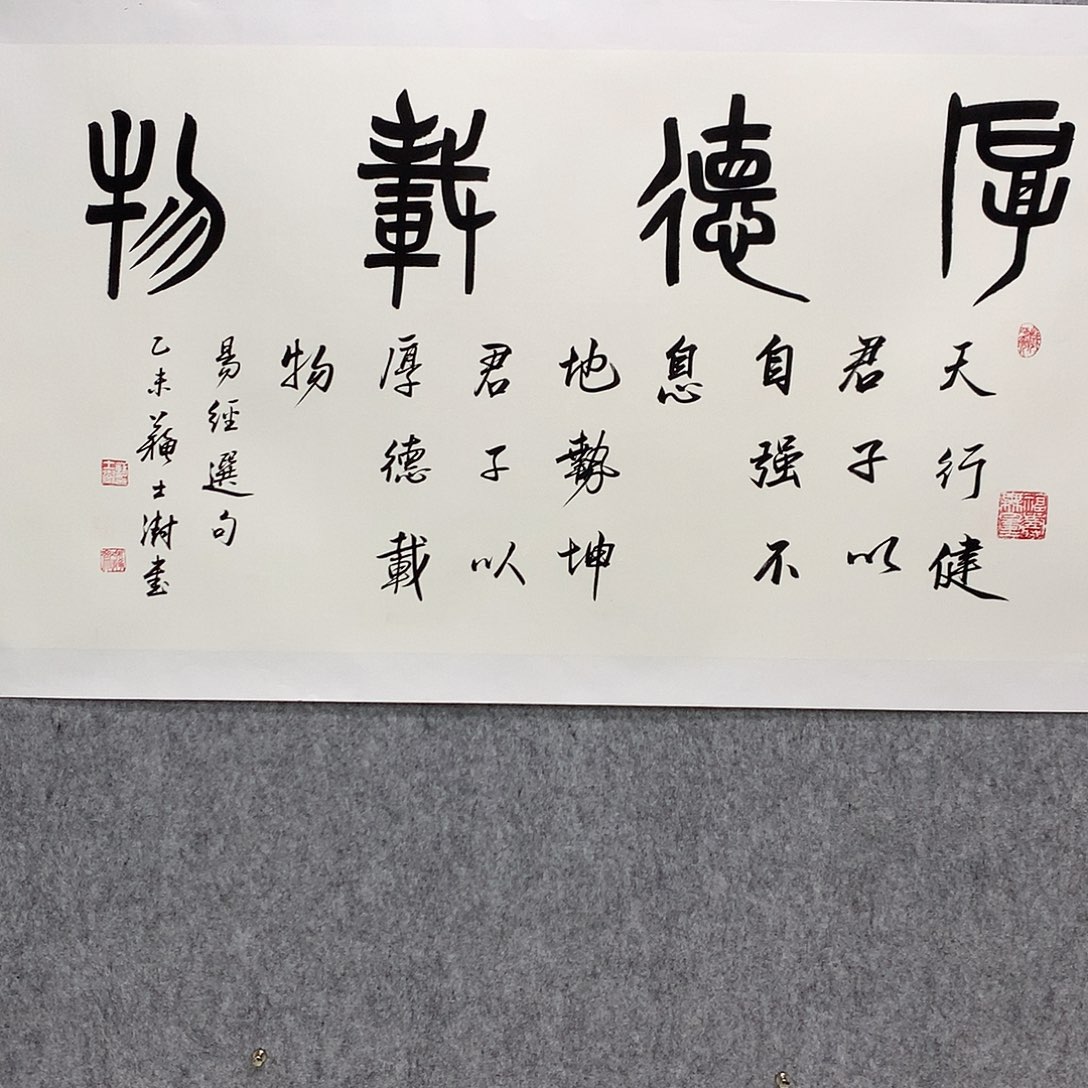 厚德載物
天行健
君子以
自强不
息
地勢坤
君子以
厚德載
物
易經選句
乙未蘇士澍書